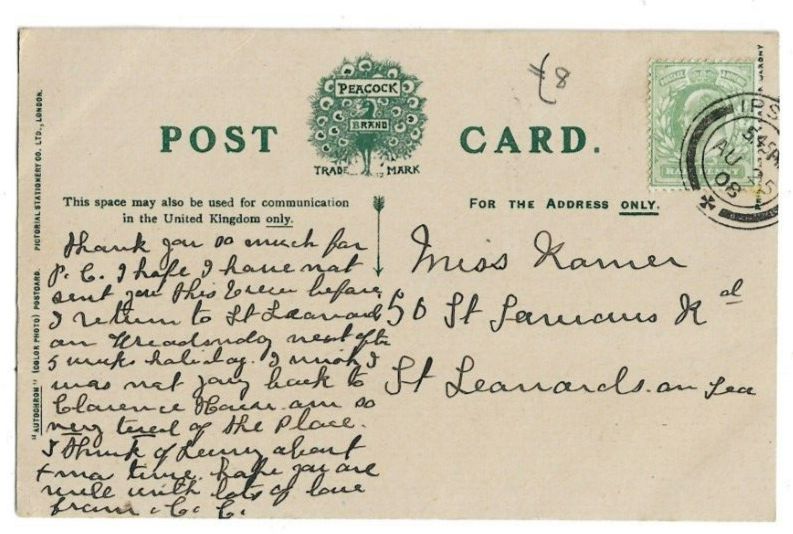 £8
PEACOCK
BRAND
TRADE MARK
POST CARD.
This space may also be used for communication
in the United Kingdom only.
FOR THE ADDRESS ONLY.
IPS
5.45PM
AU 25
08
HALFPENNY
"AUTOCHROM" (COLOR PHOTO) POSTCARD. PICTORIAL STATIONERY CO. LTD., LONDON.
Thank you so much for
P.C. I hope I have not
sent you this before
I return to St Leonards
on next
5 weeks holiday. I wish I
was not going back to
Clarence House am so
very tired of the Place.
I think of about
time. hope you are
well with lots of love
from C. C.
Miss
50 St Rd
St Leonards on Sea